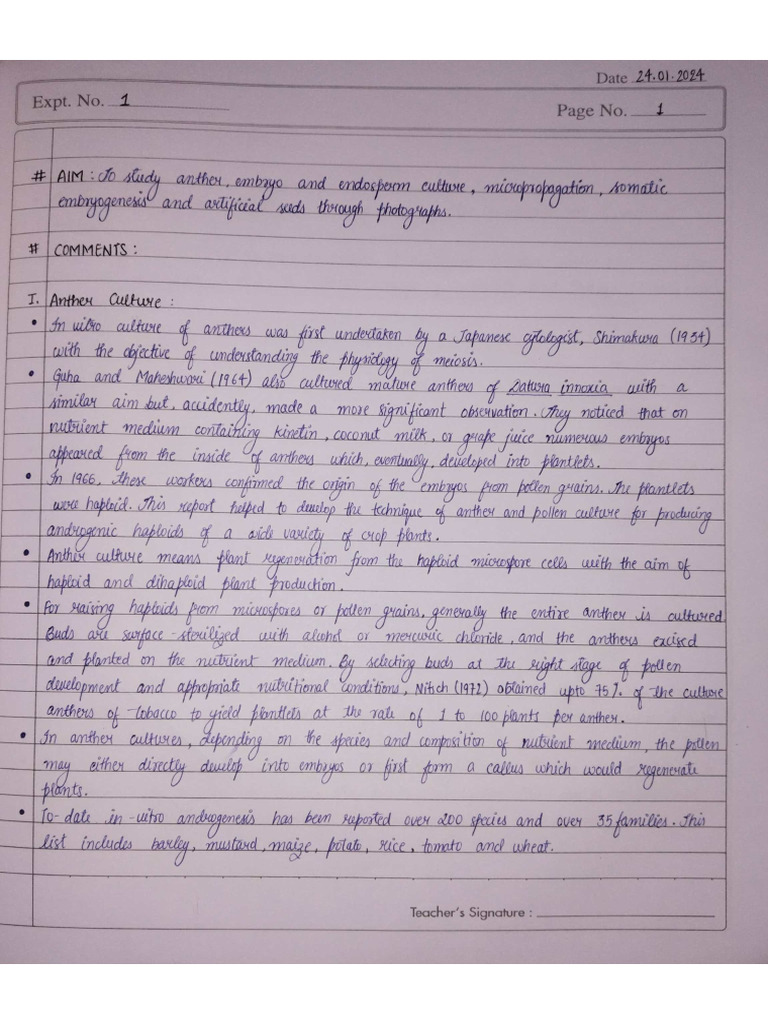 Date 24.01.2024
Expt. No. 1
Page No. 1
# AIM : To study anther, embryo and endosperm culture, micropropagation, somatic
embryogenesis and artificial seeds through photographs.
# COMMENTS :
I. Anther Culture :
• In vitro culture of anthers was first undertaken by a Japanese cytologist, Shimakura (1934)
with the objective of understanding the physiology of meiosis.
• Guha and Maheshwari (1964) also cultured mature anthers of Datura innoxia with a
similar aim but, accidently, made a more significant observation. They noticed that on
nutrient medium containing kinetin, coconut milk, or grape juice numerous embryos
appeared from the inside of anthers which, eventually, developed into plantlets.
• In 1966, these workers confirmed the origin of the embryos from pollen grains. The plantlets
were haploid. This report helped to develop the technique of anther and pollen culture for producing
androgenic haploids of a wide variety of crop plants.
• Anther culture means plant regeneration from the haploid microspore cells with the aim of
haploid and dihaploid plant production.
• For raising haploids from microspores or pollen grains, generally the entire anther is cultured.
Buds are surface-sterilized with alcohol or mercuric chloride, and the anthers excised
and planted on the nutrient medium. By selecting buds at the right stage of pollen
development and appropriate nutritional conditions, Nitsch (1972) obtained upto 75% of the culture
anthers of tobacco to yield plantlets at the rate of 1 to 100 plants per anther.
• In anther cultures, depending on the species and composition of nutrient medium, the pollen
may either directly develop into embryos or first form a callus which would regenerate
plants.
• To-date in-vitro androgenesis has been reported over 200 species and over 35 families. This
list includes barley, mustard, maize, potato, rice, tomato and wheat.
Teacher's Signature :